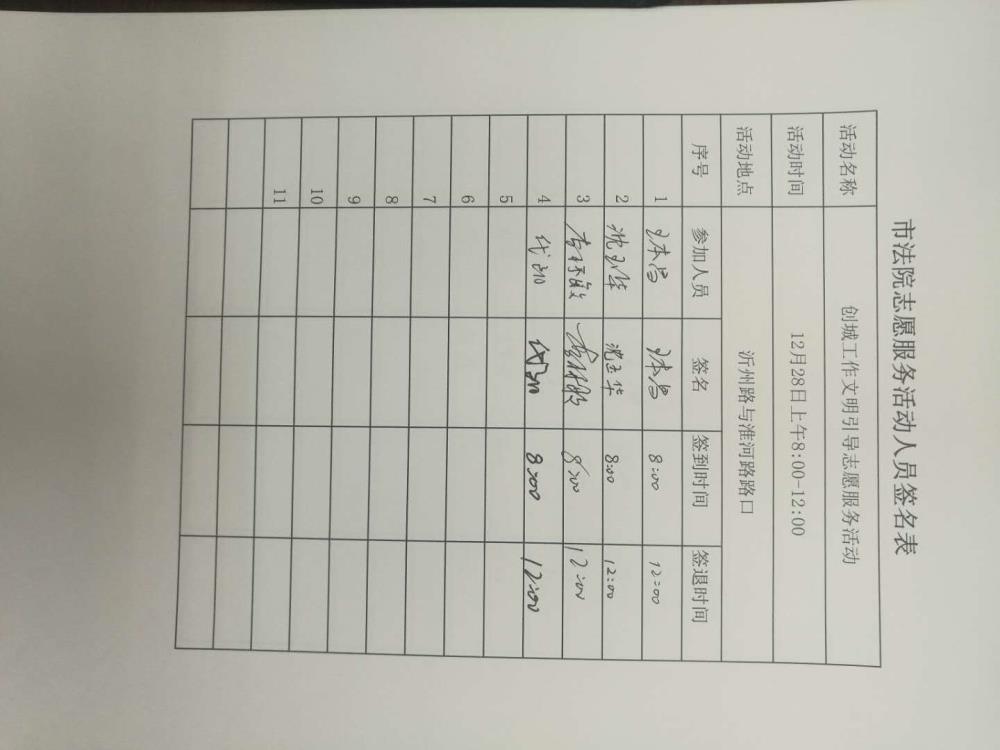 市法院志愿服务活动人员签名表
活动名称 创城工作文明引导志愿服务活动
活动时间 12月28日上午8:00-12:00
活动地点 沂州路与淮河路路口
序号 参加人员 签名 签到时间 签退时间
1 王本昌 王本昌 8:00 12:00
2 沈玉华 沈玉华 8:00 12:00
3 8:00 12:00
4 代 代 8:00 12:00
5
6
7
8
9
10
11